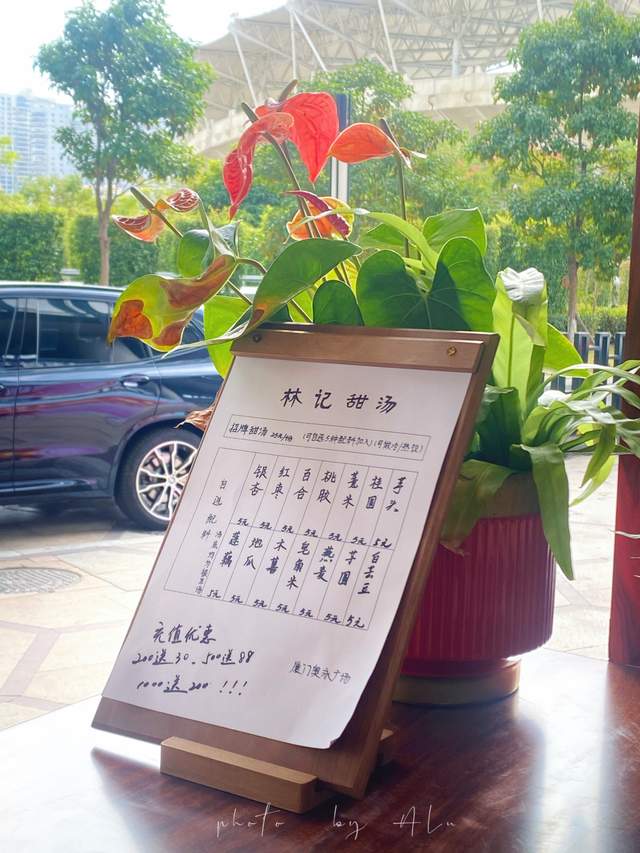 林记甜汤
招牌甜汤 25元/份 (可自选5种配料加入)(可做冷/热饮)
自选配料
银杏 红枣 百合 桃胶 薏米 桂圆 芋头
5元 5元 5元 5元 5元 5元 5元
莲藕 地瓜 木薯 皂角米 燕麦 芋圆 白芸豆
5元 5元 5元 5元 5元 5元 5元
充值优惠
200送30、500送88
1000送200 !!!
厦门奥林广场
photo by ALu